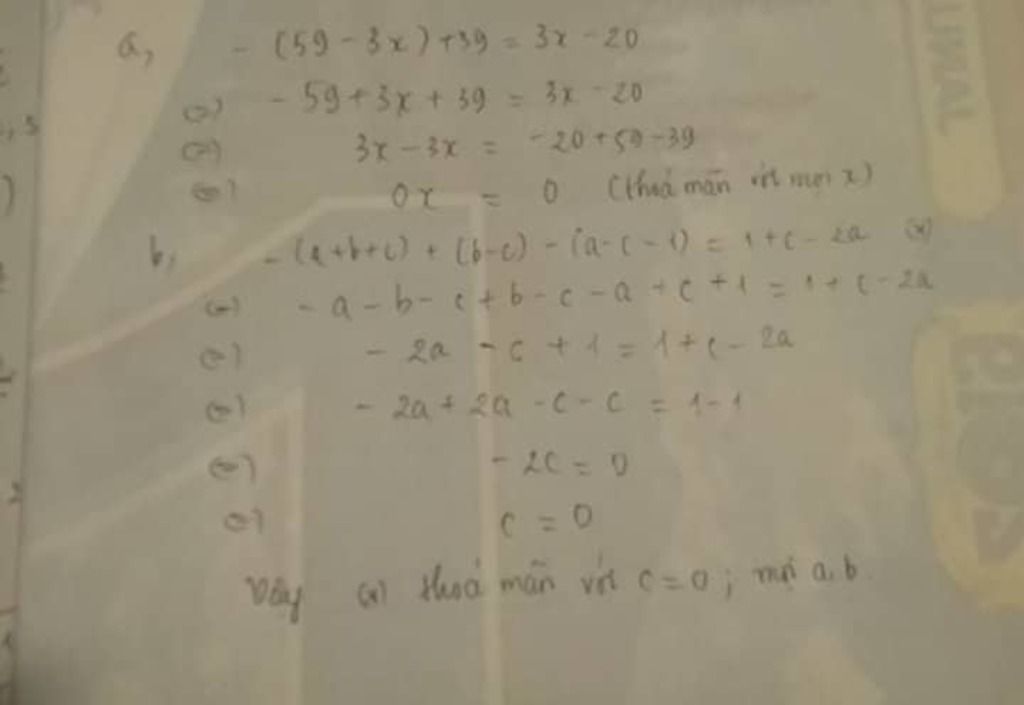 a, - (59 - 3x) + 39 = 3x - 20
<=> - 59 + 3x + 39 = 3x - 20
<=> 3x - 3x = -20 + 59 - 39
<=> 0x = 0 (thoả mãn với mọi x)
b, - (a+b+c) + (b-c) - (a-c-1) = 1+c-2a (*)
<=> - a - b - c + b - c - a + c + 1 = 1 + c - 2a
<=> - 2a - c + 1 = 1 + c - 2a
<=> - 2a + 2a - c - c = 1 - 1
<=> - 2c = 0
<=> c = 0
Vậy (*) thoả mãn với c = 0 ; mọi a, b.